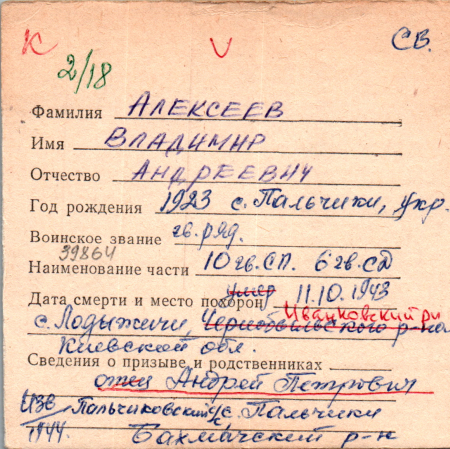 К V СВ.
2/18
Фамилия АЛЕКСЕЕВ
Имя ВЛАДИМИР
Отчество АНДРЕЕВИЧ
Год рождения 1923 с. Пальчики, Укр.
Воинское звание гв. ряд.
39864
Наименование части 10 гв. СП. 6 гв. СД
Дата смерти и место похорон умер 11.10.1943
Иванковский р-н
с. Лодыжичи, Чернобыльского р-на
Киевской обл.
Сведения о призыве и родственниках
отец Андрей Петрович
Изв Пальчиковский с/с. Пальчики
1944. Бахмачский р-н